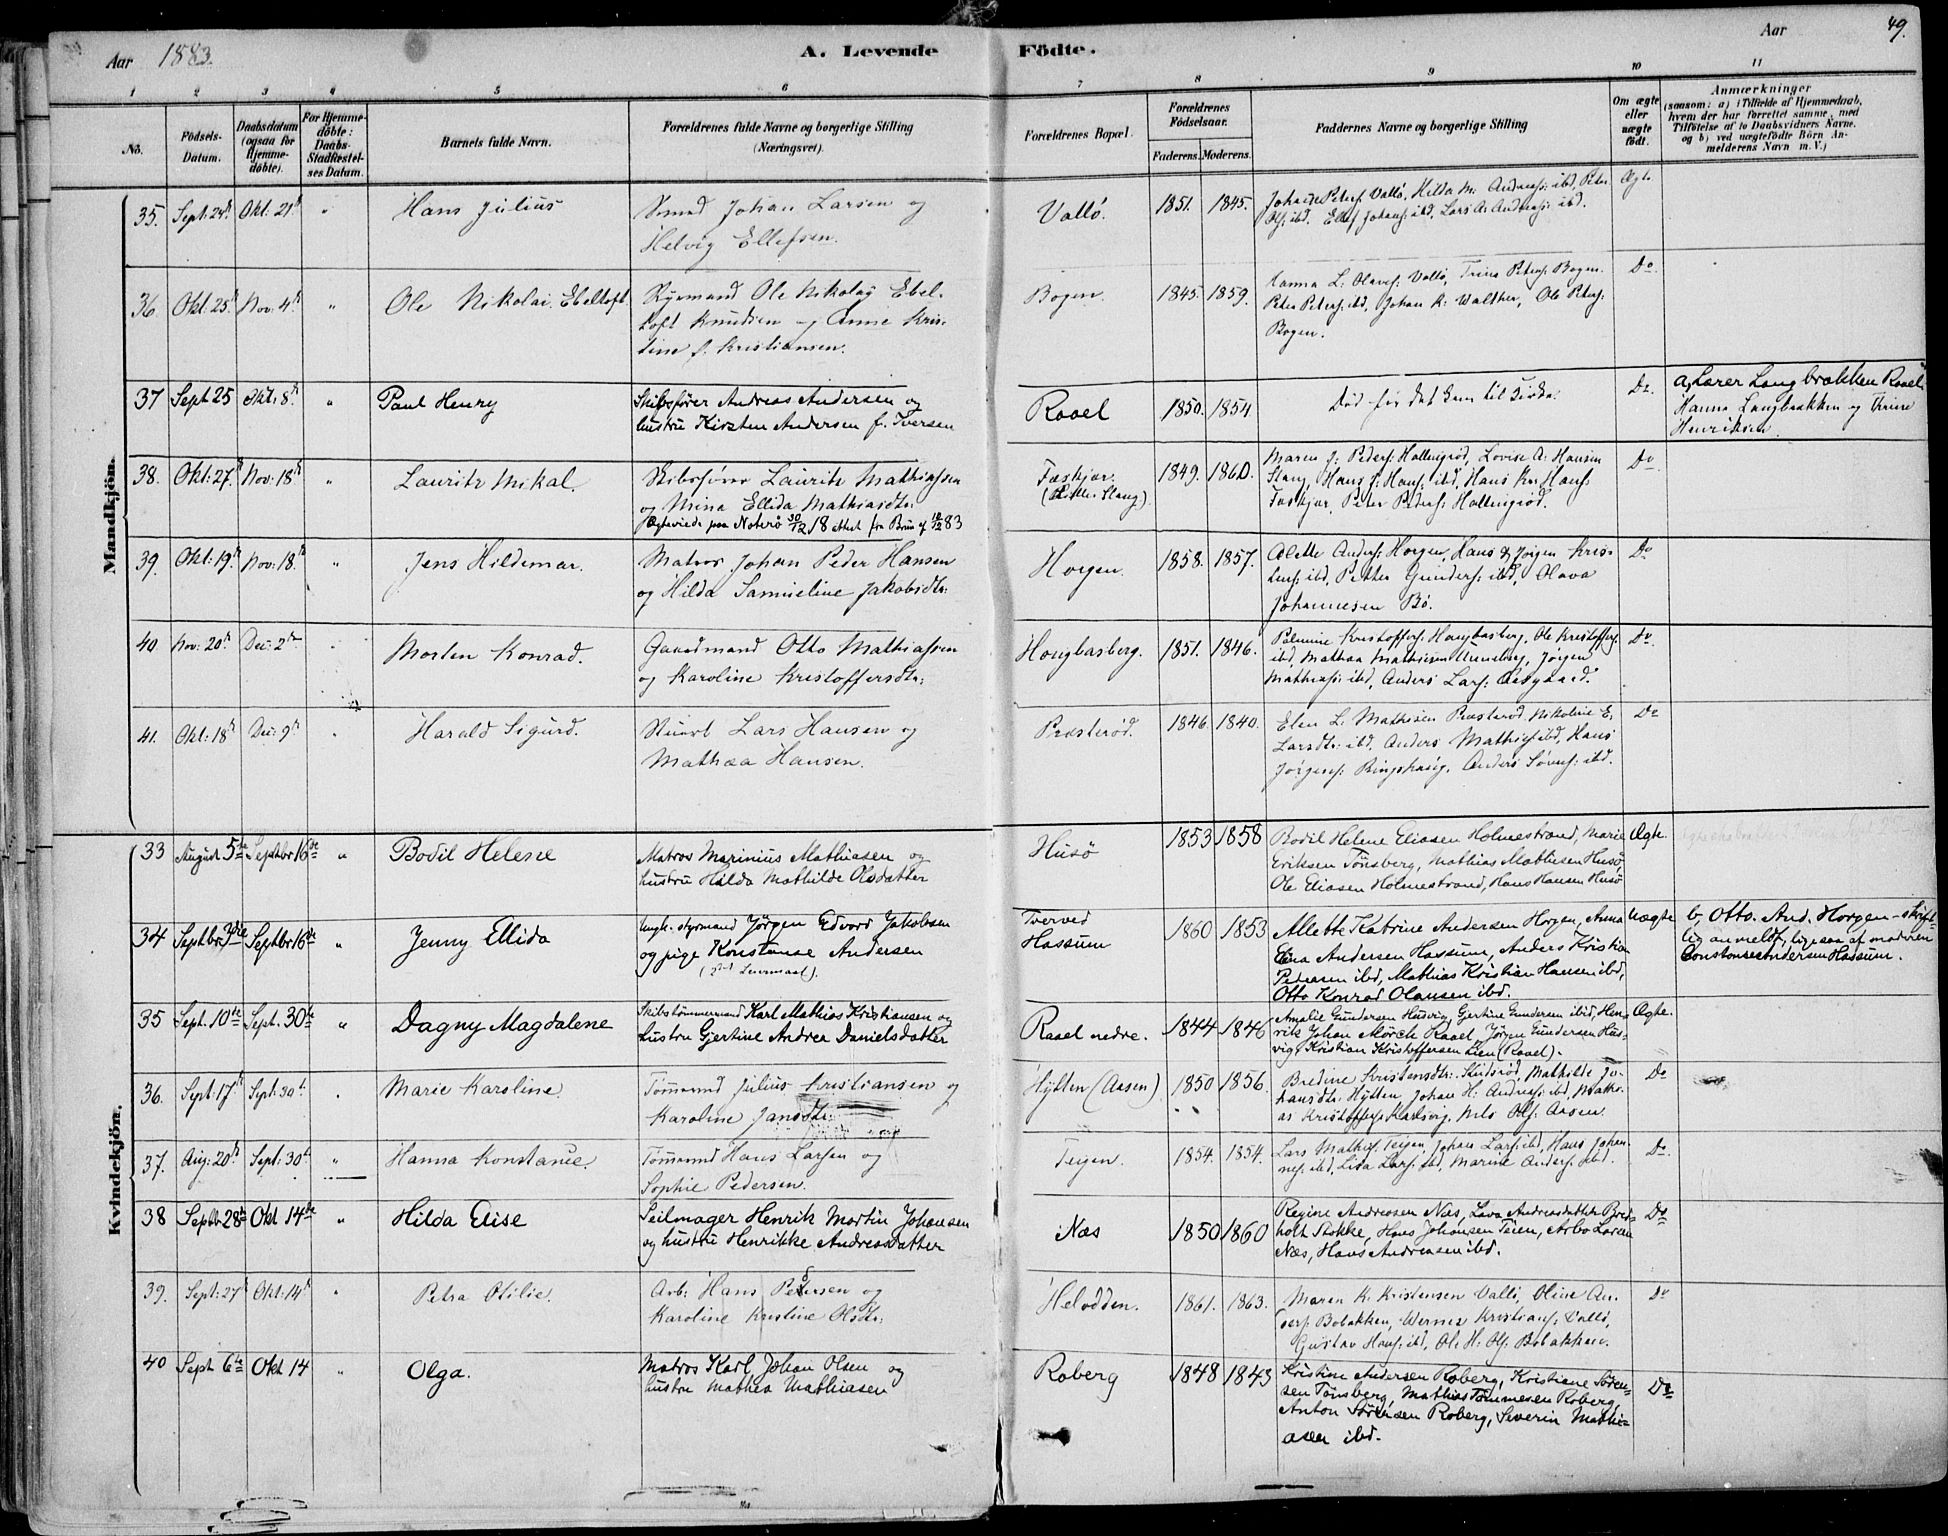 Aar 1883.
A. Levende
Födte.
Aar
49.
1 2 3 4 5 6 7 8 9 10 11
No.
Födsels-
Datum.
Daabsdatum
(ogsaa for
Hjemme-
döbte).
For Hjemme-
döbte:
Daabs-
Stadfæstel-
ses Datum.
Barnets fulde Navn.
Forældrenes fulde Navne og borgerlige Stilling
(Næringsvei).
Forældrenes Bopæl.
Forældrenes
Födselsaar.
Faderens. Moderens.
Faddernes Navne og borgerlig Stilling
Om ægte
eller
uægte
födt.
Anmærkninger
(saasom: a) i Tilfælde af Hjemmedaab,
hvem der har forrettet samme, med
Tilföielse af to Daabsvidners Navne.
og b) ved uægtefödte Börn An-
melderens Navn m. V.)
Mandkjön.
35. Sept: 24de Okt: 21de " Hans Julius
Smed Johan Larsen og
Helvig Ellefsen.
Vallö. 1851. 1845.
Johan Peters: Vallö, Hilda M: Andreas: ibd, Peter
Ols: ibd. Ellef Johans: ibd, Lars A: Andreas: ibd.
Ægte
36 Okt: 25de Nov: 4de " Ole Nikolai Ebeltoft
Styrmand Ole Nikolay Ebel-
toft Knudsen og Anne Kris-
tine f. Kristiansen.
Bogen. 1845. 1859.
Hanna L: Olaves: Vallö, Trina Peters: Bogen.
Peter Peters: ibd, Johan K: Walther, Ole Peters:
Bogen.
Do
37 Sept 25 Okt: 8de " Paul Henry
Skibsförer Andreas Andersen og
hustru Kirsten Andersen f. Iversen
Raael 1850. 1854
Död för det kom til Kirke.
Do
a, Lærer Langbrækken Raael
Hanna Langbrækken og Trine
Henriksen.
38. Okt: 27de Nov: 18de " Lauritz Mikal.
Skibsförer Lauritz Mathiassen
og Mina Ellida Mathiasdtr:
Ægteviede paa Noterö 30/12 18 Attest fra 18/12 83
Fæskjær.
(Lille Stang). 1849. 1860.
Maren J: Peders: Hallingröd, Lovise A: Hansen
Stang, Hans J: Hans: ibd, Hans Kr: Hans:
Fæskjær, Peter Peders: Hallingröd.
Do
39. Okt: 19de Nov: 18. " Jens Hildemar.
Matros Johan Peder Hansen
og Hilda Samueline Jakobsdtr:
Horgen. 1858. 1857.
Alette Anders: Horgen, Hans & Jörgen Kris-
tens: ibd, Petter Gunders: ibd, Olava
Johannesen Bö.
Do
40 Nov: 20de Dec: 2den Morten Konrad.
Gaardmand Otto Mathiassen
og Karoline Kristoffersdtr:
Hougbasberg. 1851. 1846.
Palmine Kristoffers: Hougbasberg, Ole Kristoffers:
ibd, Mathæa Mathiesen Unneberg, Jörgen
Mathias: ibd, Anders Lars: Aasgaard.
Do
41. Okt: 18de Dec: 9de Harald Sigurd.
Stuert Lars Hansen og
Mathæa Hansen.
Præsteröd. 1846 1840.
Elen L: Mathisen Præsteröd, Nikoline E:
Larsdtr: ibd, Anders Mathis: ibd, Hans
Jörgens: Ringshaug, Anders Sörens: ibd.
Do
Kvindekjön.
33 August 5te Septbr 16de " Bodil Helene
Matros Marinius Mathiasen og
hustru Hilda Mathilde Olsdatter
Husö 1853 1858
Bodil Helene Eliasen Holmestrand, Marie
Eriksen Tönsberg, Mathias Mathiesen Husö,
Ole Eliasen Holmestrand, Hans Hansen Husö
Ægte.
34 Septbr Septbr 16de " Jenny Ellida
Ungk. styrmand Jörgen Edvard Jakobsen
og pige Konstanse Andersen
(Leiermaal).
Tverved
Hassum 1860 1853
Allette Katrine Andersen Horgen, Anna
Elna Andersen Hassum, Anders Kristian
Petersen ibd, Mathias Kristian Hansen ibd,
Otto Konrad Olausen ibd.
Uægte
b, Otto. And. Horgen - skrift-
lig anmeldt, ligesaa af moderen
Constanse Andersen Hassum.
35 Sept. 10de Sept. 30te " Dagny Magdalene
Skibstömmermand Karl Mathias Kristiansen og
hustru Gjertine Andrea Danielsdatter
Raael nedre. 1844 1846
Amalie Gundersen Husvig, Gjertine Gundersen ibid, Hen-
rik Johan Mörch Raael, Jörgen Gundersen Hus-
vig, Kristian Kristoffersen Lien (Raael).
Ægte.
36. Sept: 17de Sept: 30te Marie Karoline.
Tömmermd Julius Kristiansen og
Karoline Jansdtr:
Hytten (Aasen) 1850 1856.
Bredine Kristensdtr: Studsröd, Mathilde Jo-
hansdtr: Hytten, Johan H: Andreas: ibd, Mathi-
as Kristoffers: Karlsvig, Nils Ols: Aasen.
Do
37. Aug: 20de Sept: 30te " Hanna Konstance.
Tömmermd Hans Larsen og
Sophie Pedersen.
Teigen. 1854. 1854.
Lars Mathis: Teigen, Johan Lars: ibd, Hans Johan-
nes: ibd, Lisa Lars: ibd, Marine Anders: ibd.
Do
38 Septbr 28de Okt 14de " Hilda Elise
Seilmager Henrik Martin Johansen
og hustru Henrikke Andreasdatter
Næs 1850 1860
Regine Andreasen Næs, Lava Andreasdatter Bred-
holt Stokke, Hans Johansen Teien, Arbo Larsen
Næs, Hans Andreasen ibd.
Do
39. Sept: 27de Okt: 14de " Petra Otilie.
Arb: Hans Pedersen og
Karoline Kristine Olsdtr:
Helodden. 1861. 1863.
Maren K. Kristensen Vallö, Oline An-
ders: Bolækken, Werner Kristians: Vallö,
Gustav Hans: ibd, Ole H: Ols: Bolækken.
Do
40 Sept 6te Okt 14 " Olga.
Matros Karl Johan Olsen og
hustru Mathea Mathiasen
Roberg 1848 1843
Kristine Andersen Roberg, Kristiane Sören-
sen Tönsberg, Mathias Tommesen Roberg,
Anton Sörensen Roberg, Severin Mathi-
asen ibd.
Do